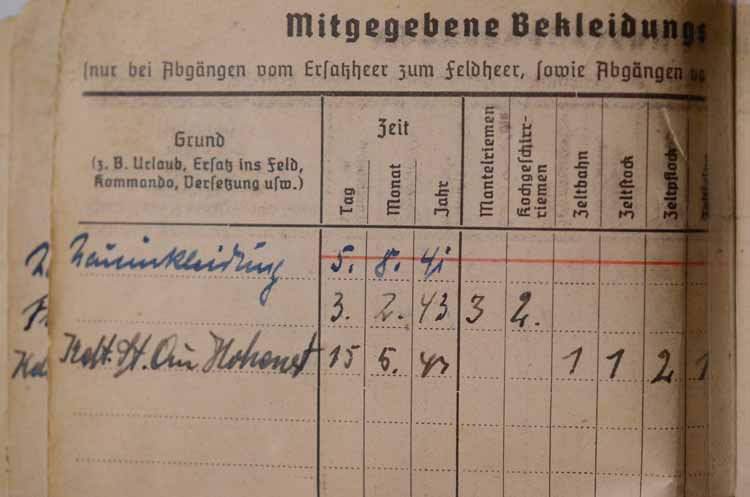 Mitgegebene Bekleidungs
(nur bei Abgängen vom Ersatzheer zum Feldheer, sowie Abgängen
Grund
(z. B. Urlaub, Ersatz ins Feld,
Kommando, Versetzung usw.)
Zeit
Tag
Monat
Jahr
Mantelriemen
Kochgeschirr-
riemen
Zeltbahn
Zeltstock
Zeltpflock
Neueinkleidung 5. 8. 41
3. 2. 43 3 2.
15 5. 1 1 2 1